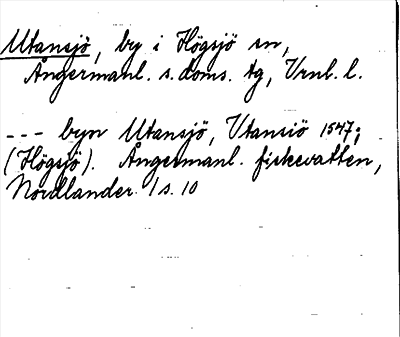 Utansjö, by i Högsjö sn,
Ångermanl. s. doms. tg, Vrnl. l.
--- byn Utansjö, Vtansiö 1547;
(Högsjö). Ångermanl. fiskevatten,
Nordlander 1 s. 10